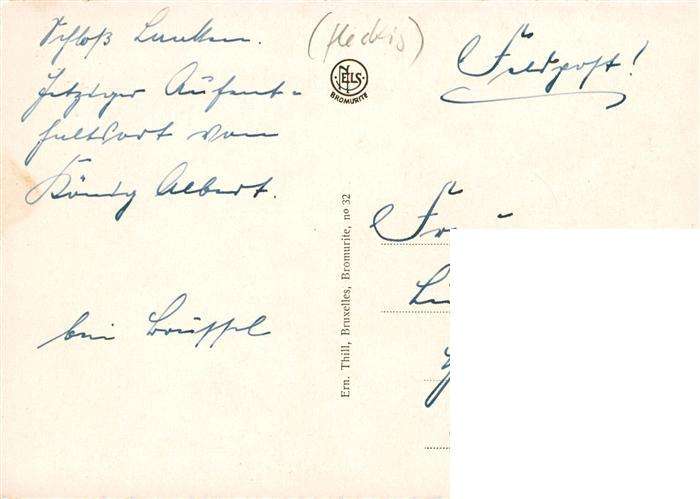 Schloß Laeken.
Jetziger Aufent-
haltsort von
König Albert.
bei Brüssel
NELS
BROMURITE
Ern. Thill, Bruxelles, Bromurite, no 32
Feldpost!